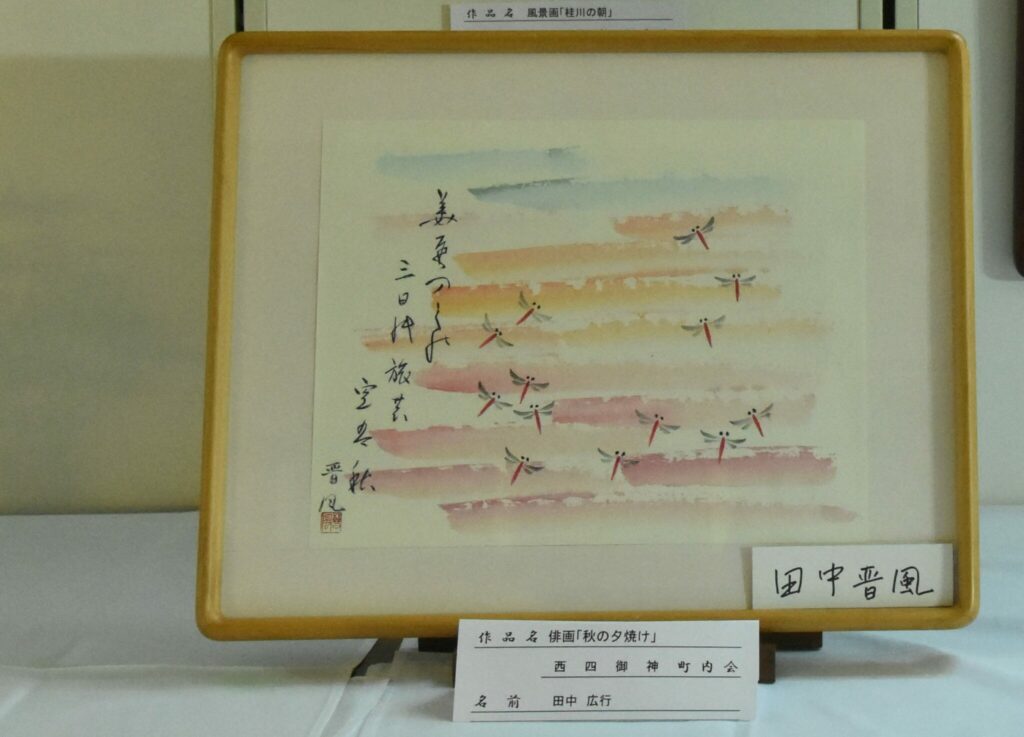 作品名 風景画「桂川の朝」
三日の旅
空
秋
晋風
田中晋風
作品名 俳画「秋の夕焼け」
西四御神町内会
名前 田中 広行